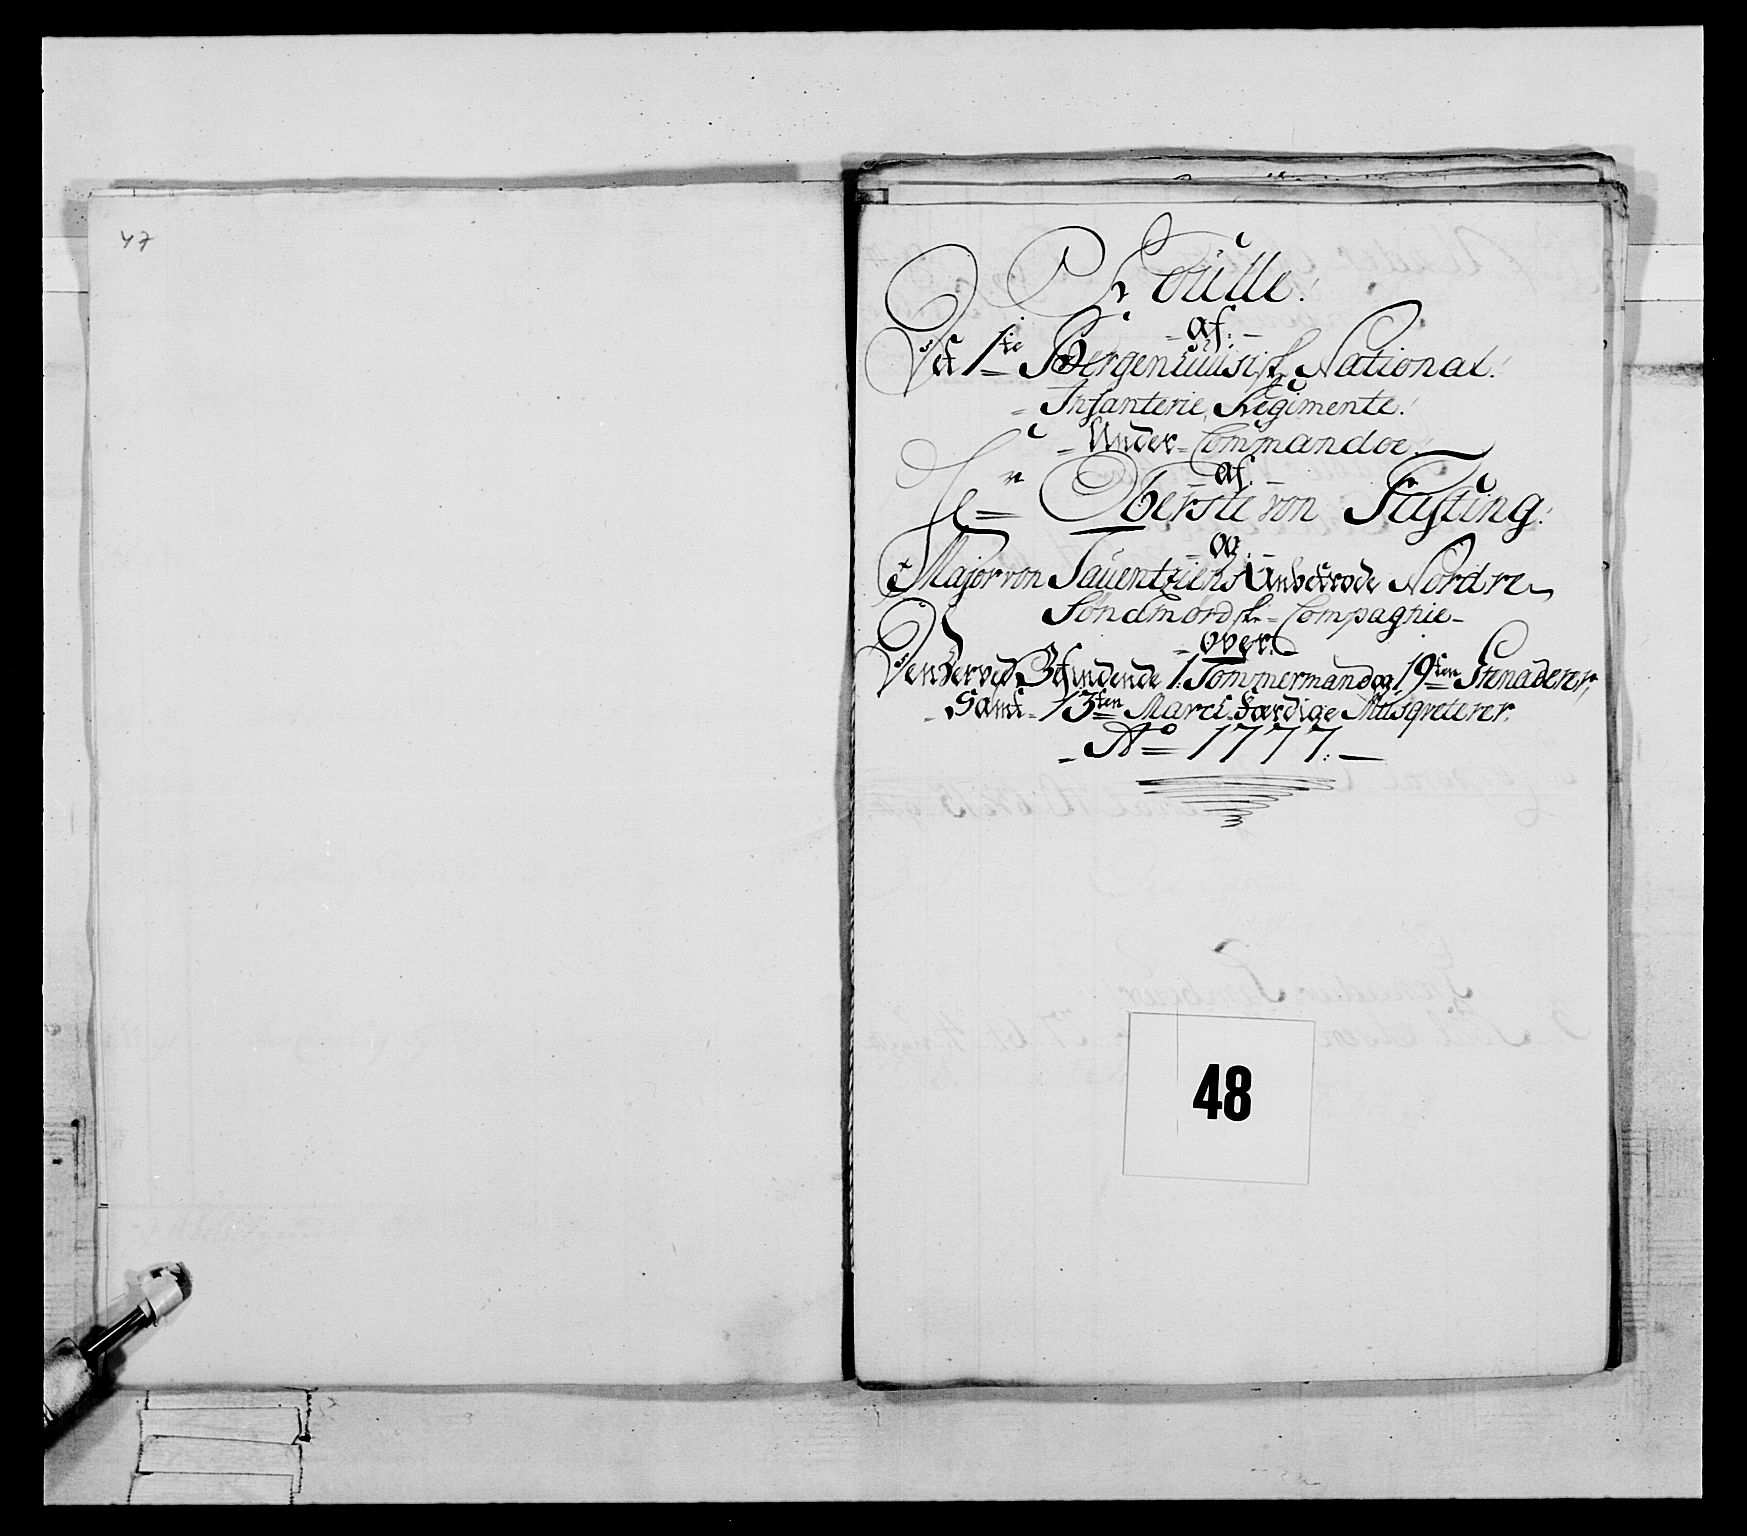 47
Roulle:
- af: -
Det 1ste Bergenhuusiske National:
- Infanterie, Regimente:
- Under - Commandoe:
- af: -
Hr Oberste von Fasting:
- og: -
Major von Tauentziens Anbetrode Nordre
Söndmördske - Compagnie -
- over:
Den derved Befindende 1. Tømmermand og 19ten Grenaderer,
- Samt - 13ten Marci færdige Musqveterer.
- Ao 1777: -
48